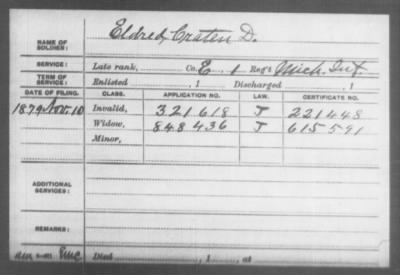 NAME OF SOLDIER: Eldred, Craten D.
SERVICE: Late rank, Co. E, 1 Reg't Mich. Inf.
TERM OF SERVICE: Enlisted , 1 Discharged , 1
DATE OF FILING. CLASS. APPLICATION NO. LAW. CERTIFICATE NO.
1879 Nov. 10 Invalid, 321618 J 221448
Widow, 848436 J 615591
Minor,
ADDITIONAL SERVICES:
REMARKS:
Died , 1 , at